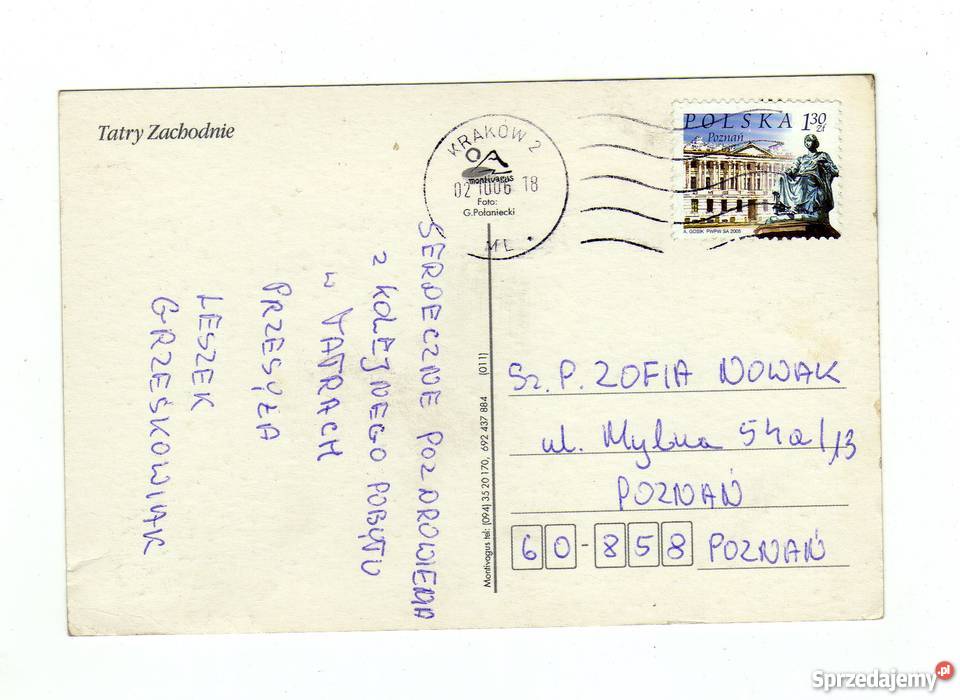 Tatry Zachodnie
KRAKÓW 2
montivagus
02 10 06 18
Foto:
G.Połaniecki
ML
POLSKA 1 30 zł
Poznań
A. GOSIK PWPW SA 2005
SERDECZNE POZDROWIENIA
z KOLEJNEGO POBYTU
w TATRACH
PRZESYŁA
LESZEK
GRZEŚKOWIAK
Montivagus tel: (094) 35 20 170, 692 437 884 (011)
Sz. P. ZOFIA NOWAK
ul. Mylna 54a/13
POZNAŃ
60-858 POZNAŃ
Sprzedajemy.pl